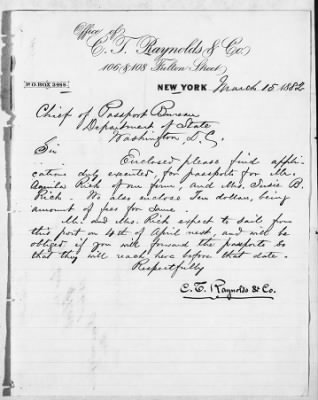 Office of
C. T. Raynolds & Co.
106 & 108 Fulton Street
P.O. BOX
NEW YORK March 15 1882
Chief of Passport Bureau
Department of State
Washington, D.C.
Sir
Enclosed please find appli-
cations duly executed, for passports for Mr.
Rich of our firm, and Mrs. Susie B.
Rich. We also enclose Ten dollars, being
amount of fees for same.
Mr. and Mrs. Rich expect to sail from
this port on 4th of April next, and will be
obliged if you will forward the passports so
that they will reach here before that date.
Respectfully
C. T. Raynolds & Co.